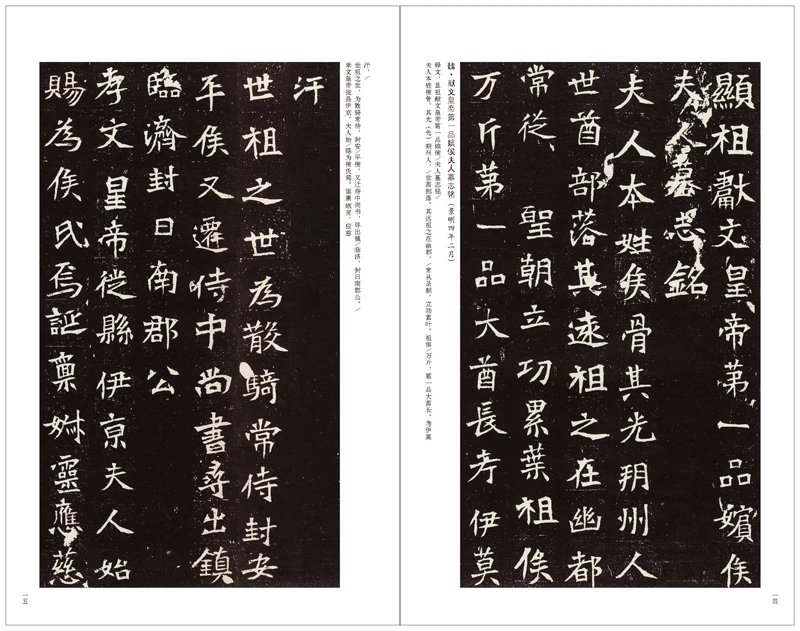 顯祖獻文皇帝第一品嬪侯
夫人墓志銘
夫人本姓侯骨其光玥州人
世酋部落其遠祖之在幽都
常從 聖朝立功累葉祖俟
万斤第一品大酋長考伊莫
魏·献文皇帝第一品嫔侯夫人墓志铭（景明四年二月）
释文：显祖献文皇帝第一品嫔侯／夫人墓志铭／
夫人本姓侯骨，其光（先）朔州人，／世酋部落。其远祖之在幽都，／常从圣朝，立功累叶。祖俟／万斤，第一品大酋长。考伊莫
一四
汗，／
世祖之世，为散骑常侍，封安／平侯，又迁侍中尚书，寻出镇／临济，封日南郡公。／
孝文皇帝徙县伊京，夫人始／赐为侯氏焉。诞禀淑灵，应慈
汗
世祖之世為散騎常侍封安
平侯又遷侍中尚書尋出鎮
臨濟封日南郡公
孝文皇帝徙縣伊京夫人始
賜為侯氏焉誕禀淑靈應慈
一五